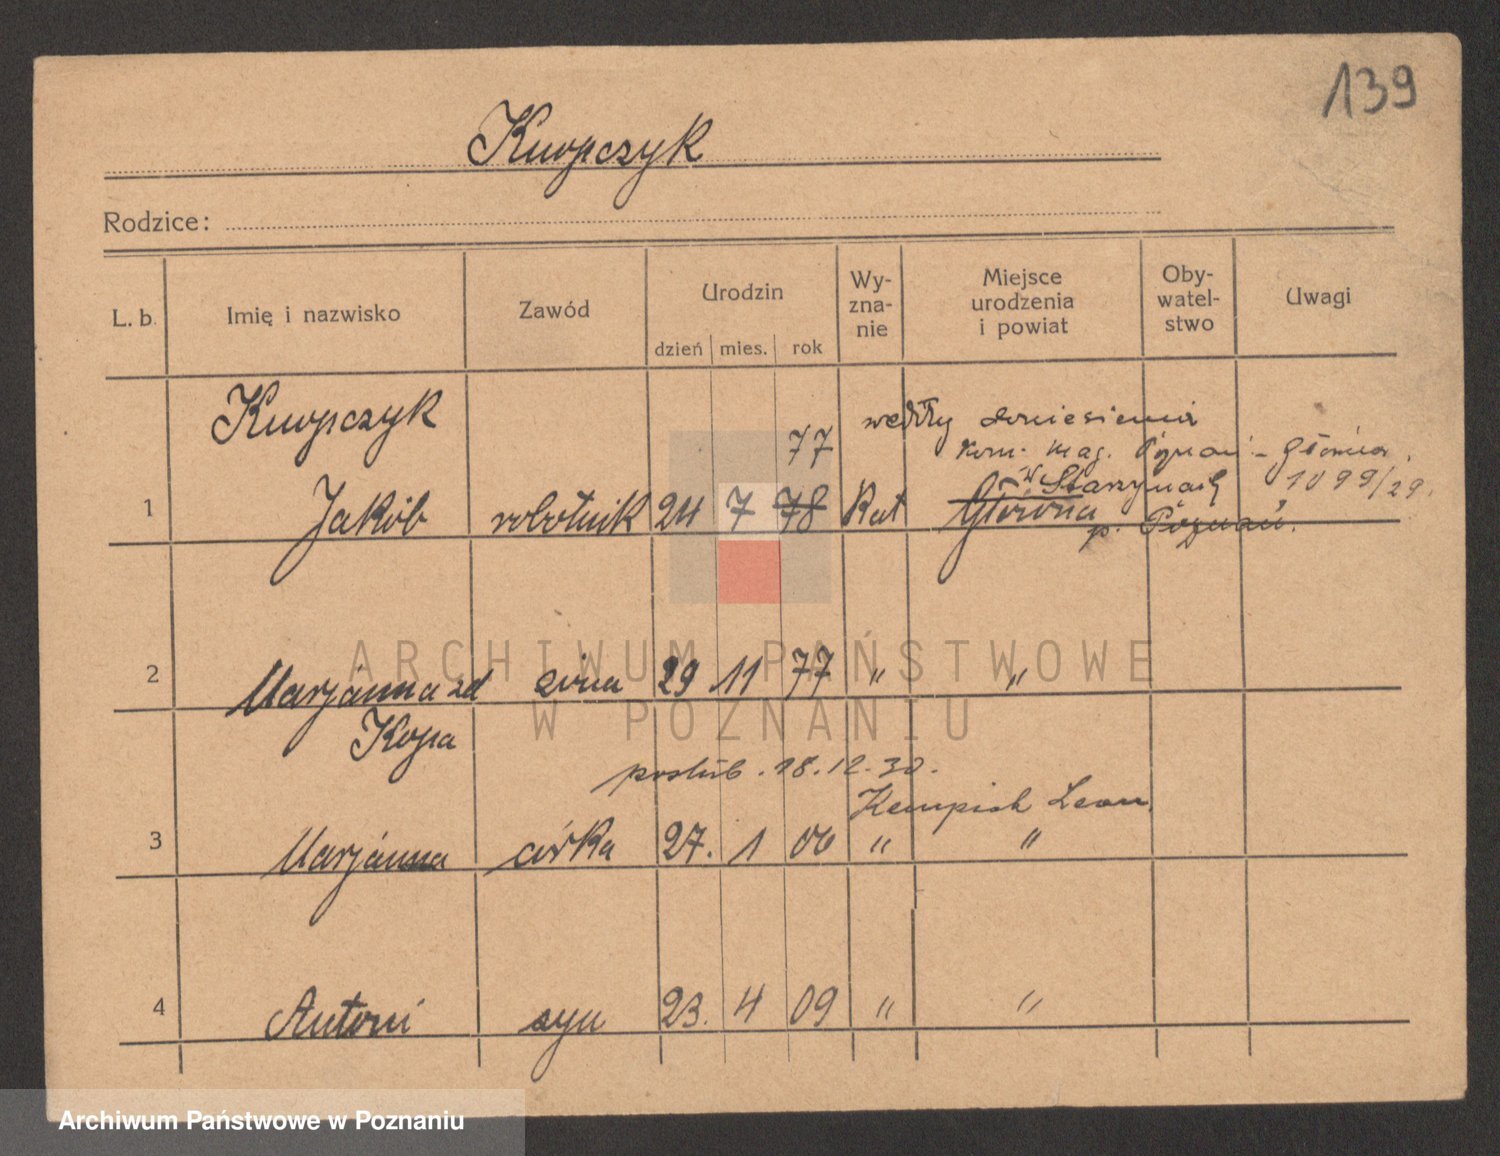 139
Knopczyk
Rodzice:
L. b. Imię i nazwisko Zawód Urodzin dzień mies. rok Wy-zna-nie Miejsce urodzenia i powiat Oby-watel-stwo Uwagi
Knopczyk 77 według doniesienia
Kom. Mag. Poznań - Główna
w Starzynach 1099/29.
1 Jakób robotnik 24 7 78 Kat Główna
p. Poznań.
ARCHIWUM PAŃSTWOWE
2 Marjanna zd żona 29 11 77 " "
W POZNANIU
Kopa
poślub. 18.12.30.
Leon
3 Marjanna córka 27. 1 06 " "
4 Antoni syn 23. 4 09 " "
Archiwum Państwowe w Poznaniu